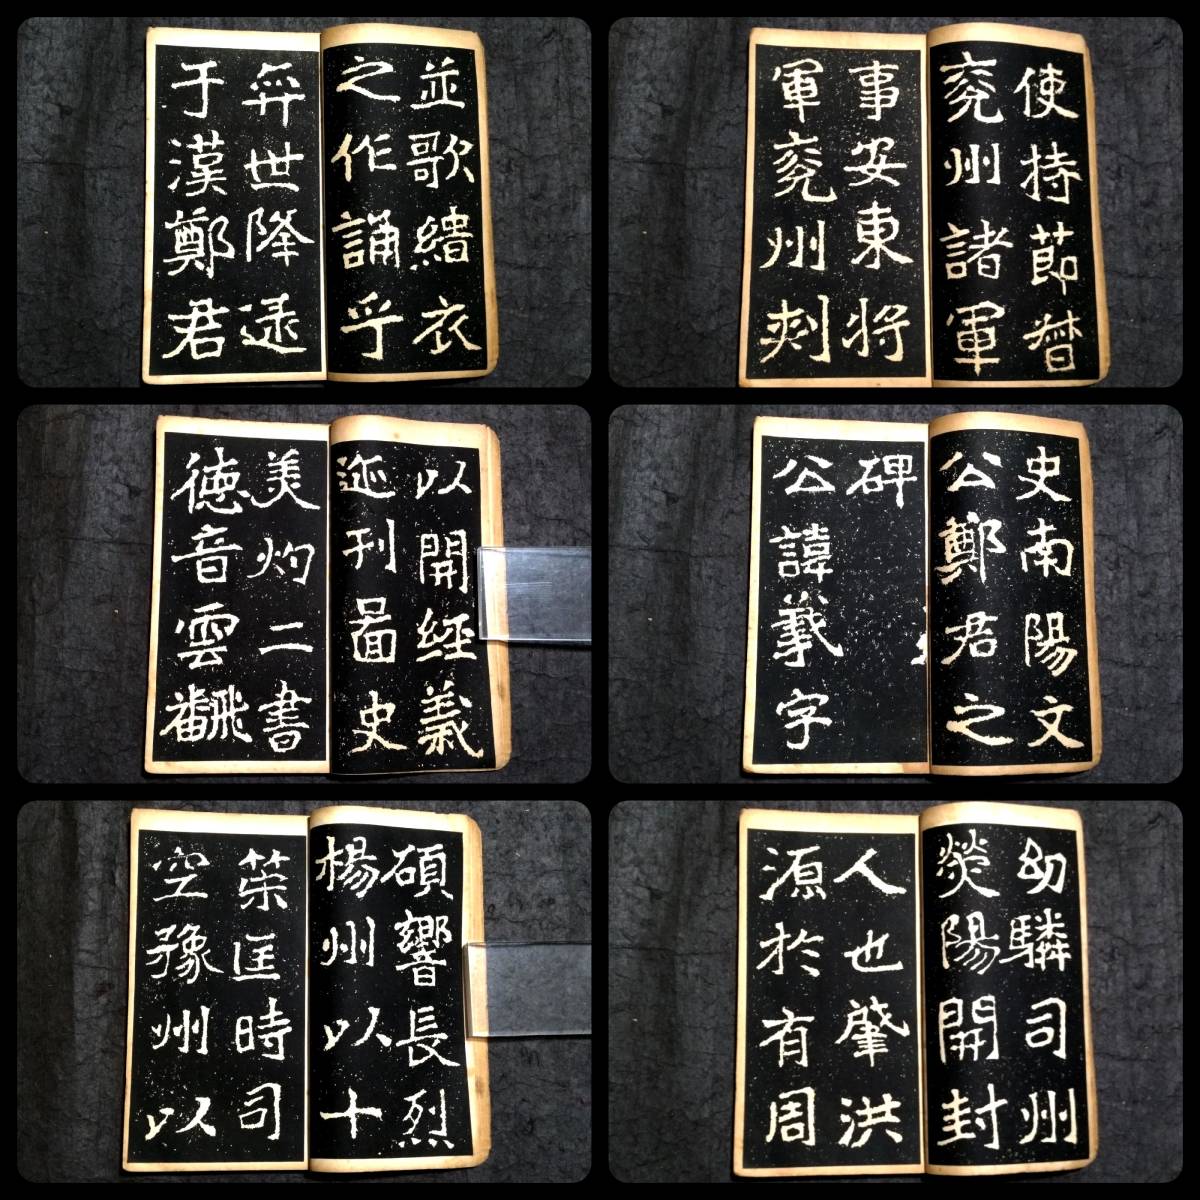 使持節督
兗州諸軍
事安東將
軍兗州刺
史南陽文
公鄭君之
碑
公諱羲字
幼驎司州
滎陽開封
人也肇洪
源於有周
並歌緇衣
之作誦乎
弈世降逮
于漢鄭君
以開經義
迹刊圖史
美灼二書
德音雲翻
碩響長烈
楊州以十
策匡時司
空豫州以